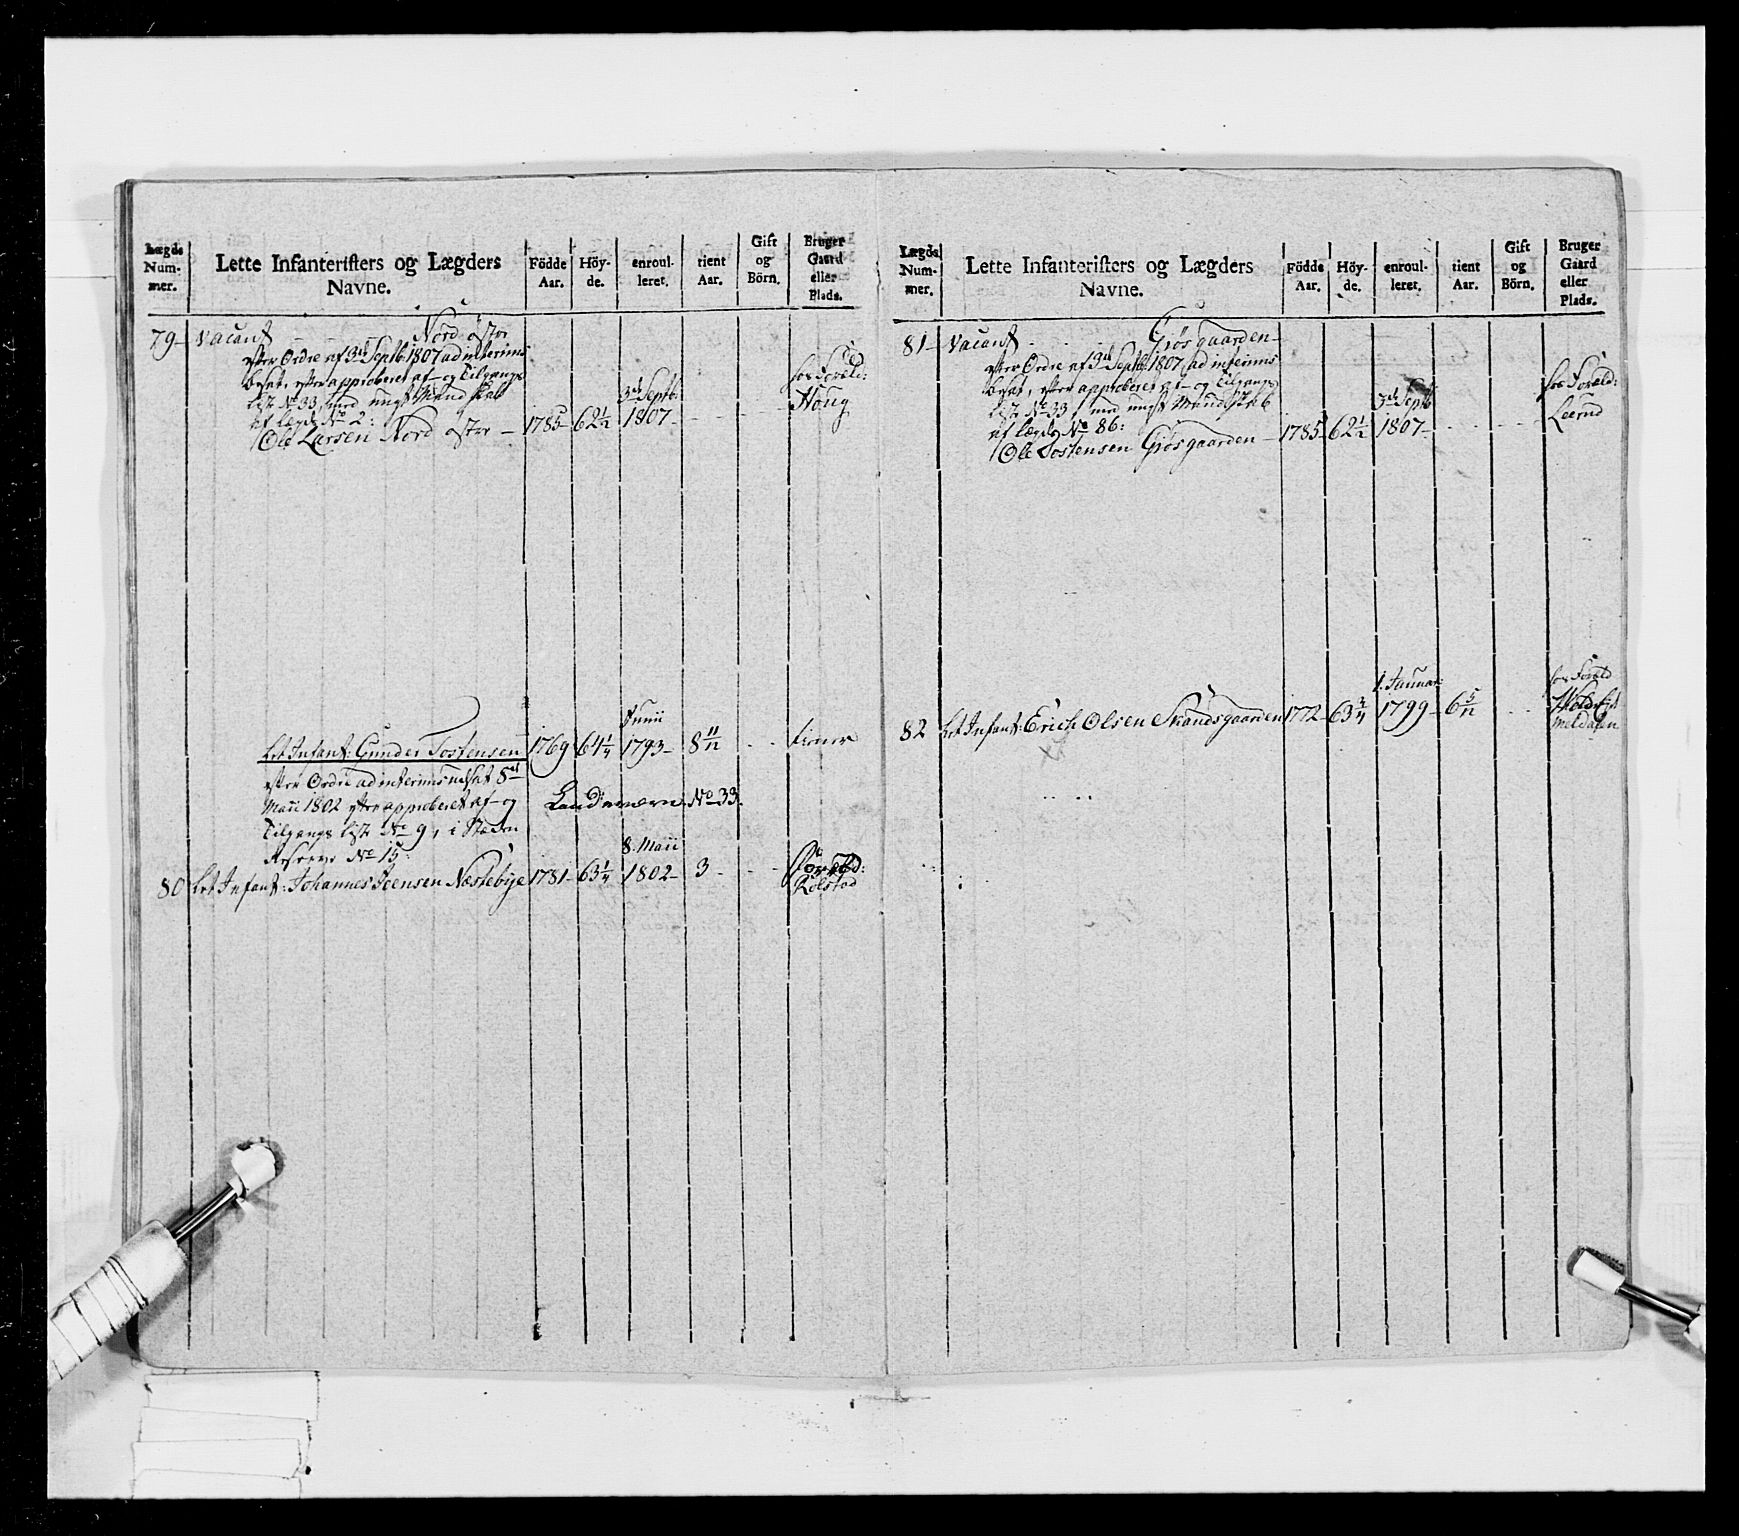 Lægds Num- mer.
Lette Infanterifters og Lægders Navne.
Födde Aar.
Höy- de.
enroul- leret.
tient Aar.
Gift og Börn.
Bruger Gaard eller Plads.
79 Vacant Nord øster
efter Ordre af 3de Septb: 1807 ad interims
besat, efter approberet af- og Tilgangs
Liste No 33, med ungt Mandskab
af lægds No 2:
Ole Larsen Nord øster 1785 62 1/2 3de Septb: 1807 hos Foræld: Houg
Let Infant: Gunder Tostensen 1769 64 1/4 Junii 1793 8 11/12
efter Ordre ad interims udsat 8de
Maii 1802 efter approberet af- og
Tilgangs Liste No 9, i Stæden
Reserve No 15:
Landeværn No 33.
80 Let Infant: Johannes Jensen Næstebye 1781 63 1/4 8. Maii 1802 3 Foræld: Rolstad
Lægds Num- mer.
Lette Infanterifters og Lægders Navne.
Födde Aar.
Höy- de.
enroul- leret.
tient Aar.
Gift og Börn.
Bruger Gaard eller Plads.
81 Vacant Giøsgaarden
efter Ordre af 3de Septb: 1807 ad interims
besat, efter approberet af- og Tilgangs
Liste No 33, med ungt Mandskab
af lægds No 86:
Ole Tostensen Giøsgaarden 1785 62 1/2 3de Septb 1807 hos Foræld: Leerud
82 Let Infant: Erich Olsen Strandsgaarden 1772 63 3/4 1. Januar: 1799 6 5/12 hos Foræld